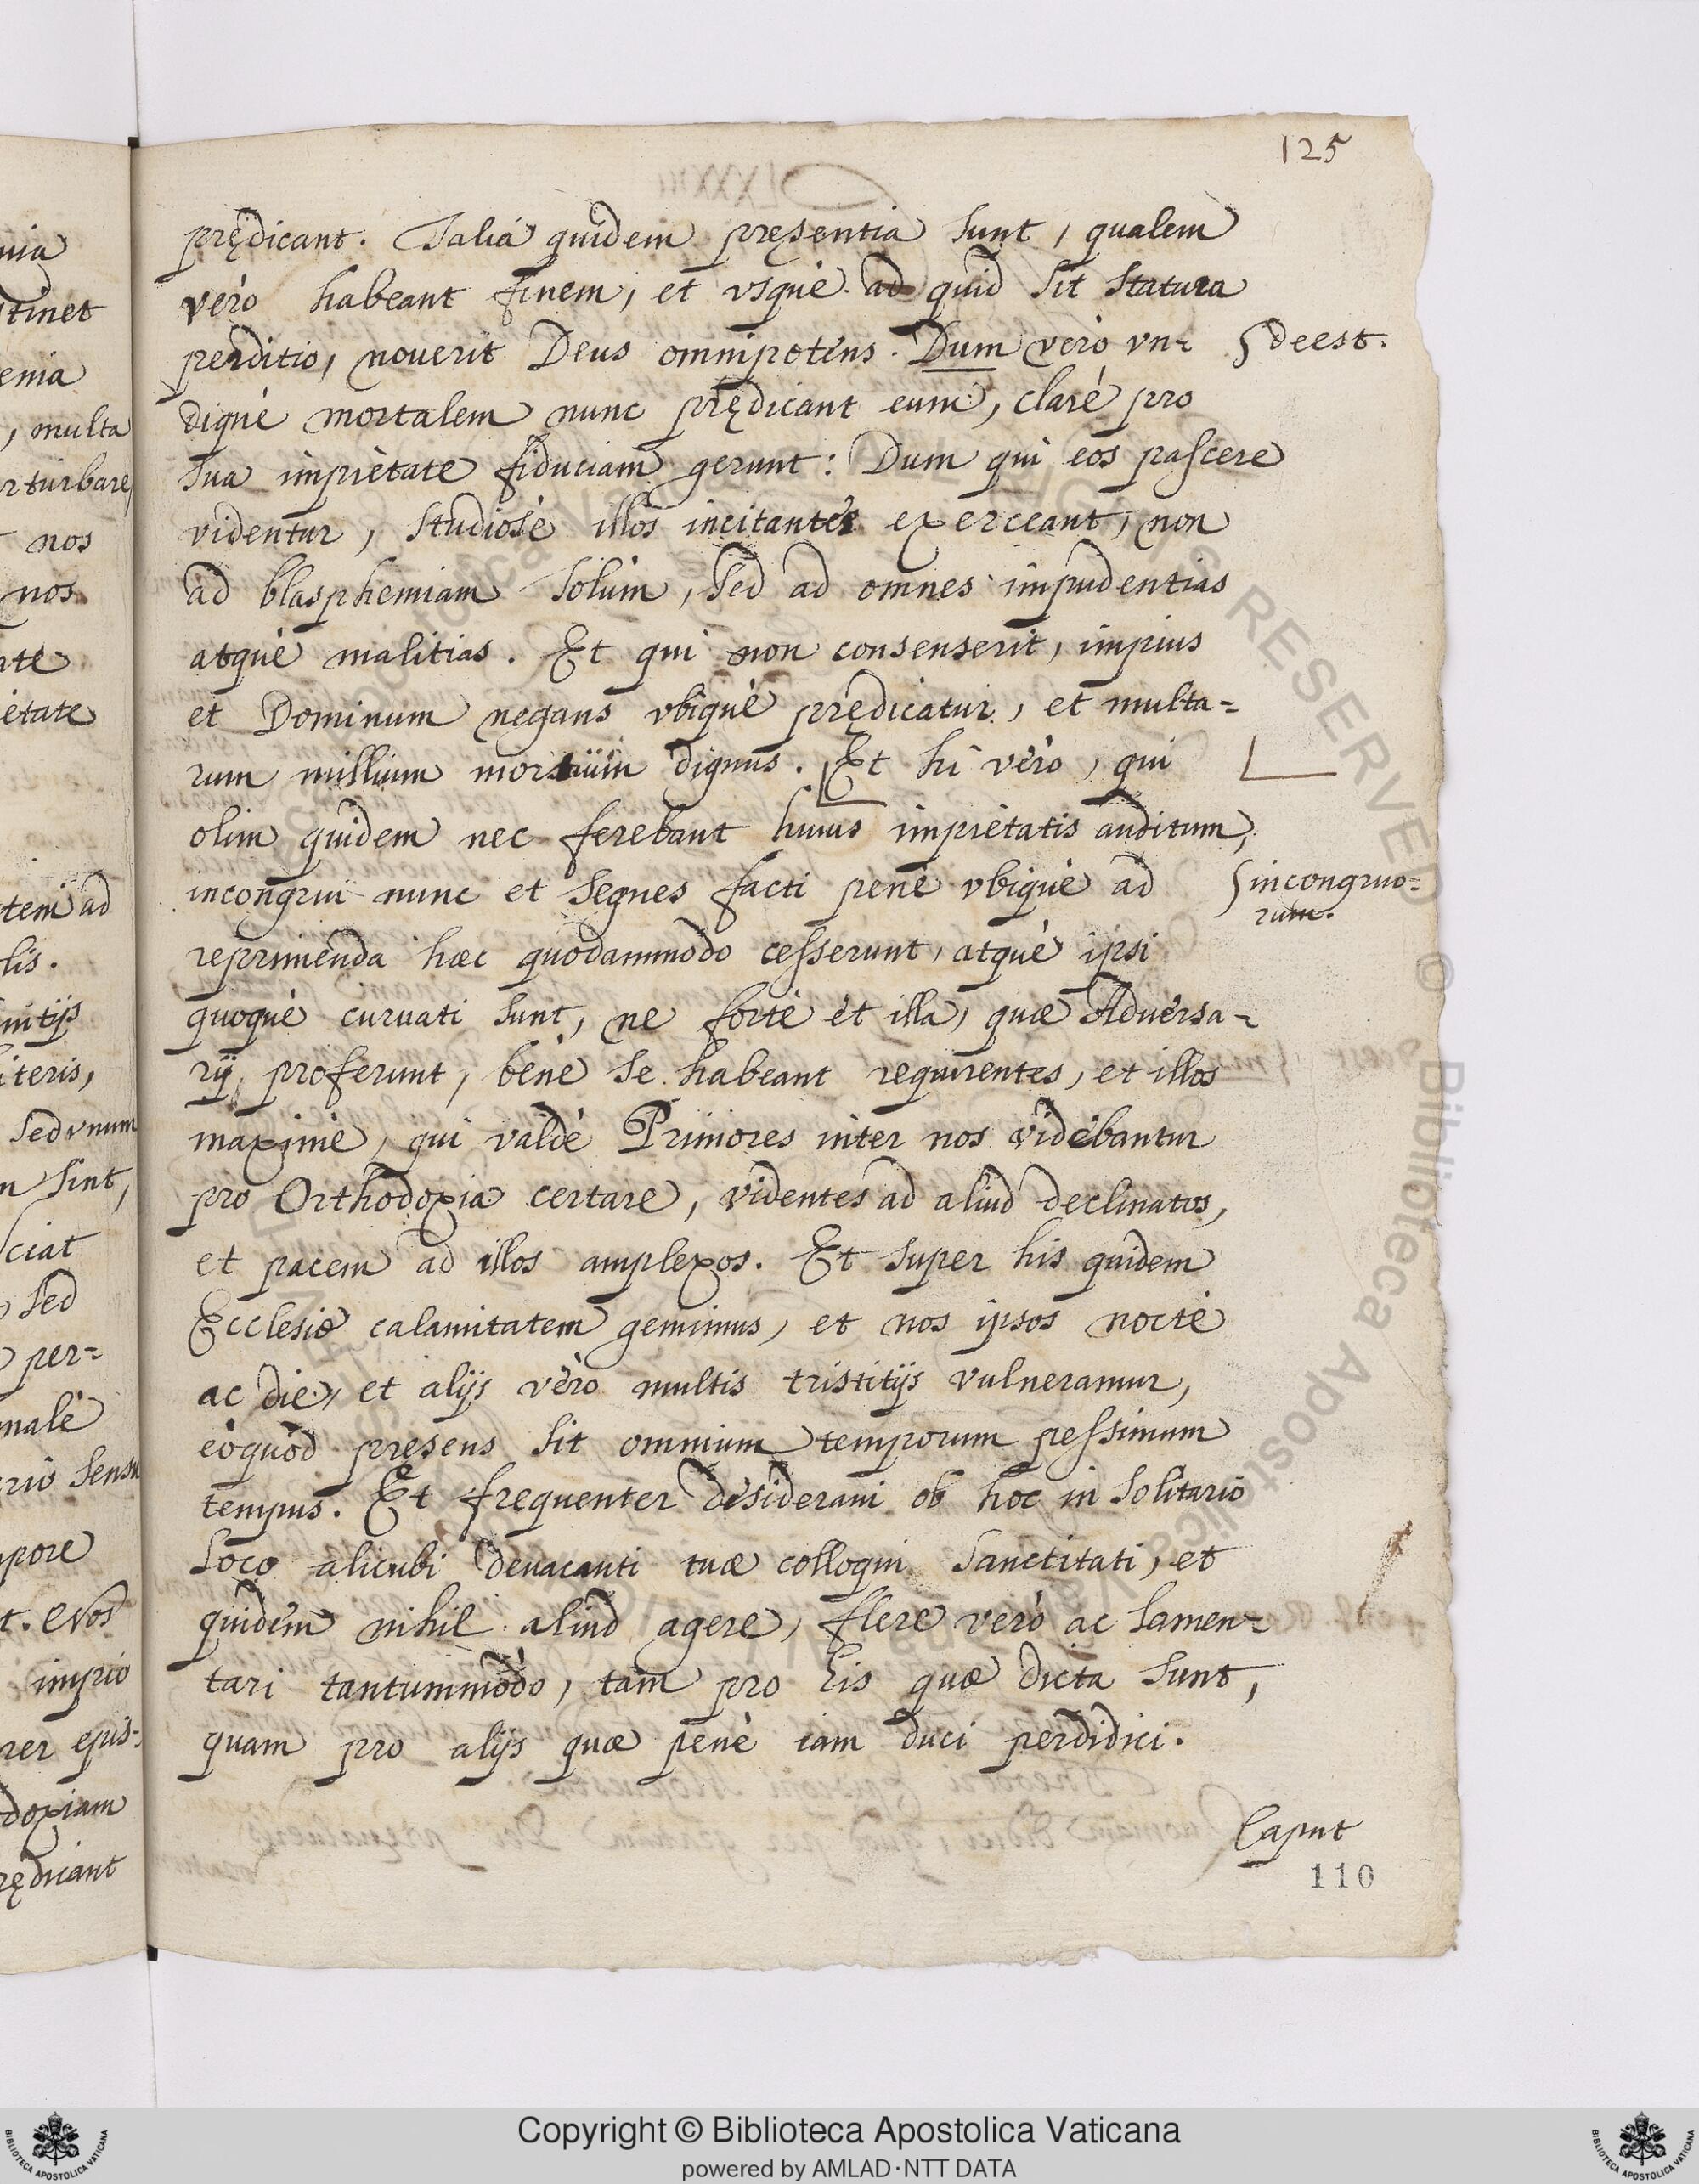 125
prędicant. Talia quidem pręsentia sunt, qualem
verò habeant finem, et vsquè ad quid sit statura
perditio, nouerit Deus omnipotens. Dum verò vn= deest.
diquè mortalem nunc prędicant eum, clarè pro
sua impietate fiduciam gerunt: Dum qui eos pascere
videntur, studiosè illos incitantes exerceant, non
ad blasphemiam solùm, sed ad omnes impudentias
atquè malitias. Et qui non consenserit, impius
et Dominum negans vbiquè prędicatur, et multa=
rum millium mortuum dignus. Et hi verò, qui
olim quidem nec ferebant huius impietatis auditum,
incongrui nunc et segnes facti penè vbiquè ad incongruo=
rum.
reprimenda hæc quodammodo cesserunt, atquè ipsi
quoquè curuati sunt, ne fortè et illa, quæ Aduersa=
rij proferunt, benè se habeant requirentes, et illos
maximè, qui valdè Primores inter nos videbantur
pro Orthodoxia certare, videntes ad aliud declinatos,
et pacem ad illos amplexos. Et super his quidem
Ecclesiæ calamitatem gemimus, et nos ipsos nocte
ac die, et alijs verò multis tristitijs vulneramur,
eòquòd presens sit omnium temporum pessimum
tempus. Et frequenter desideraui ob hoc in solitario
loco alicubi deuacanti tuæ colloqui Sanctitati, et
quidem nihil aliud agere, flere verò ac lamen=
tari tantummodò, tam pro his quæ dicta sunt,
quam pro alijs quæ penè iam duci perdidici.
Caput
110
nia
tinet
enia
, multa
rturbare
nos
nos
ate
ietate
tem ad
lis.
nitijs
iteris,
sed vnum
n sint,
ciat
, sed
per=
malè
rio sensu
pore
t. Nos
impio
ner epis=
doxiam
rędicant
Copyright © Biblioteca Apostolica Vaticana
powered by AMLAD·NTT DATA